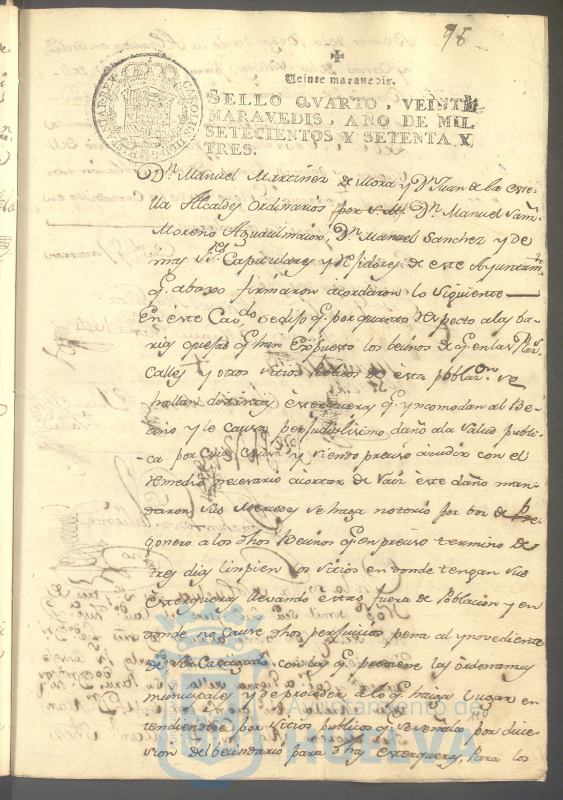 98
Veinte maravedis.
SELLO QVARTO, VEINTE
MARAVEDIS, AÑO DE MIL
SETECIENTOS Y SETENTA Y
TRES.
Dn. Manuel Martinez de Mora y Dn. Juan de la
Alcaldes ordinarios por S. M. Dn. Manuel
Moreno Dn. Manuel Sanchez y de
mas Capitulares y Rejidores de este Ayuntamto.
q. abaxo firmaron acordaron lo siguiente
En este Cavdo. se dixo q. por quanto Respecto a las ba
rias quejas q. han Expuesto los becinos de q. en las
Calles y otros sitios de esta Poblazon. se
hallan distintas estergueras q. yncomodan al Be
cino y le causa perjudicilisimo daño a la salud publi
ca por cuia causa y siendo preciso acudir con el
Remedio necesario a cortar de raiz este daño man
daron sus mercedes se haga notorio por boz de Pre
gonero a los dhos becinos q. en preciso termino de
tres dias linpien los sitios en donde tengan sus
estergueras llevando estas fuera de Poblacion y en
donde no cause dhos perjuicios pena al ynovediente
de ser Castigado con las q. previene las ordenanzas
municipales y de proceder a lo q. haya lugar en
tendiendose por sitios publicos q. se señala por
del becindario para dhas estergueras, Para los
Ayuntamiento de
HUELVA